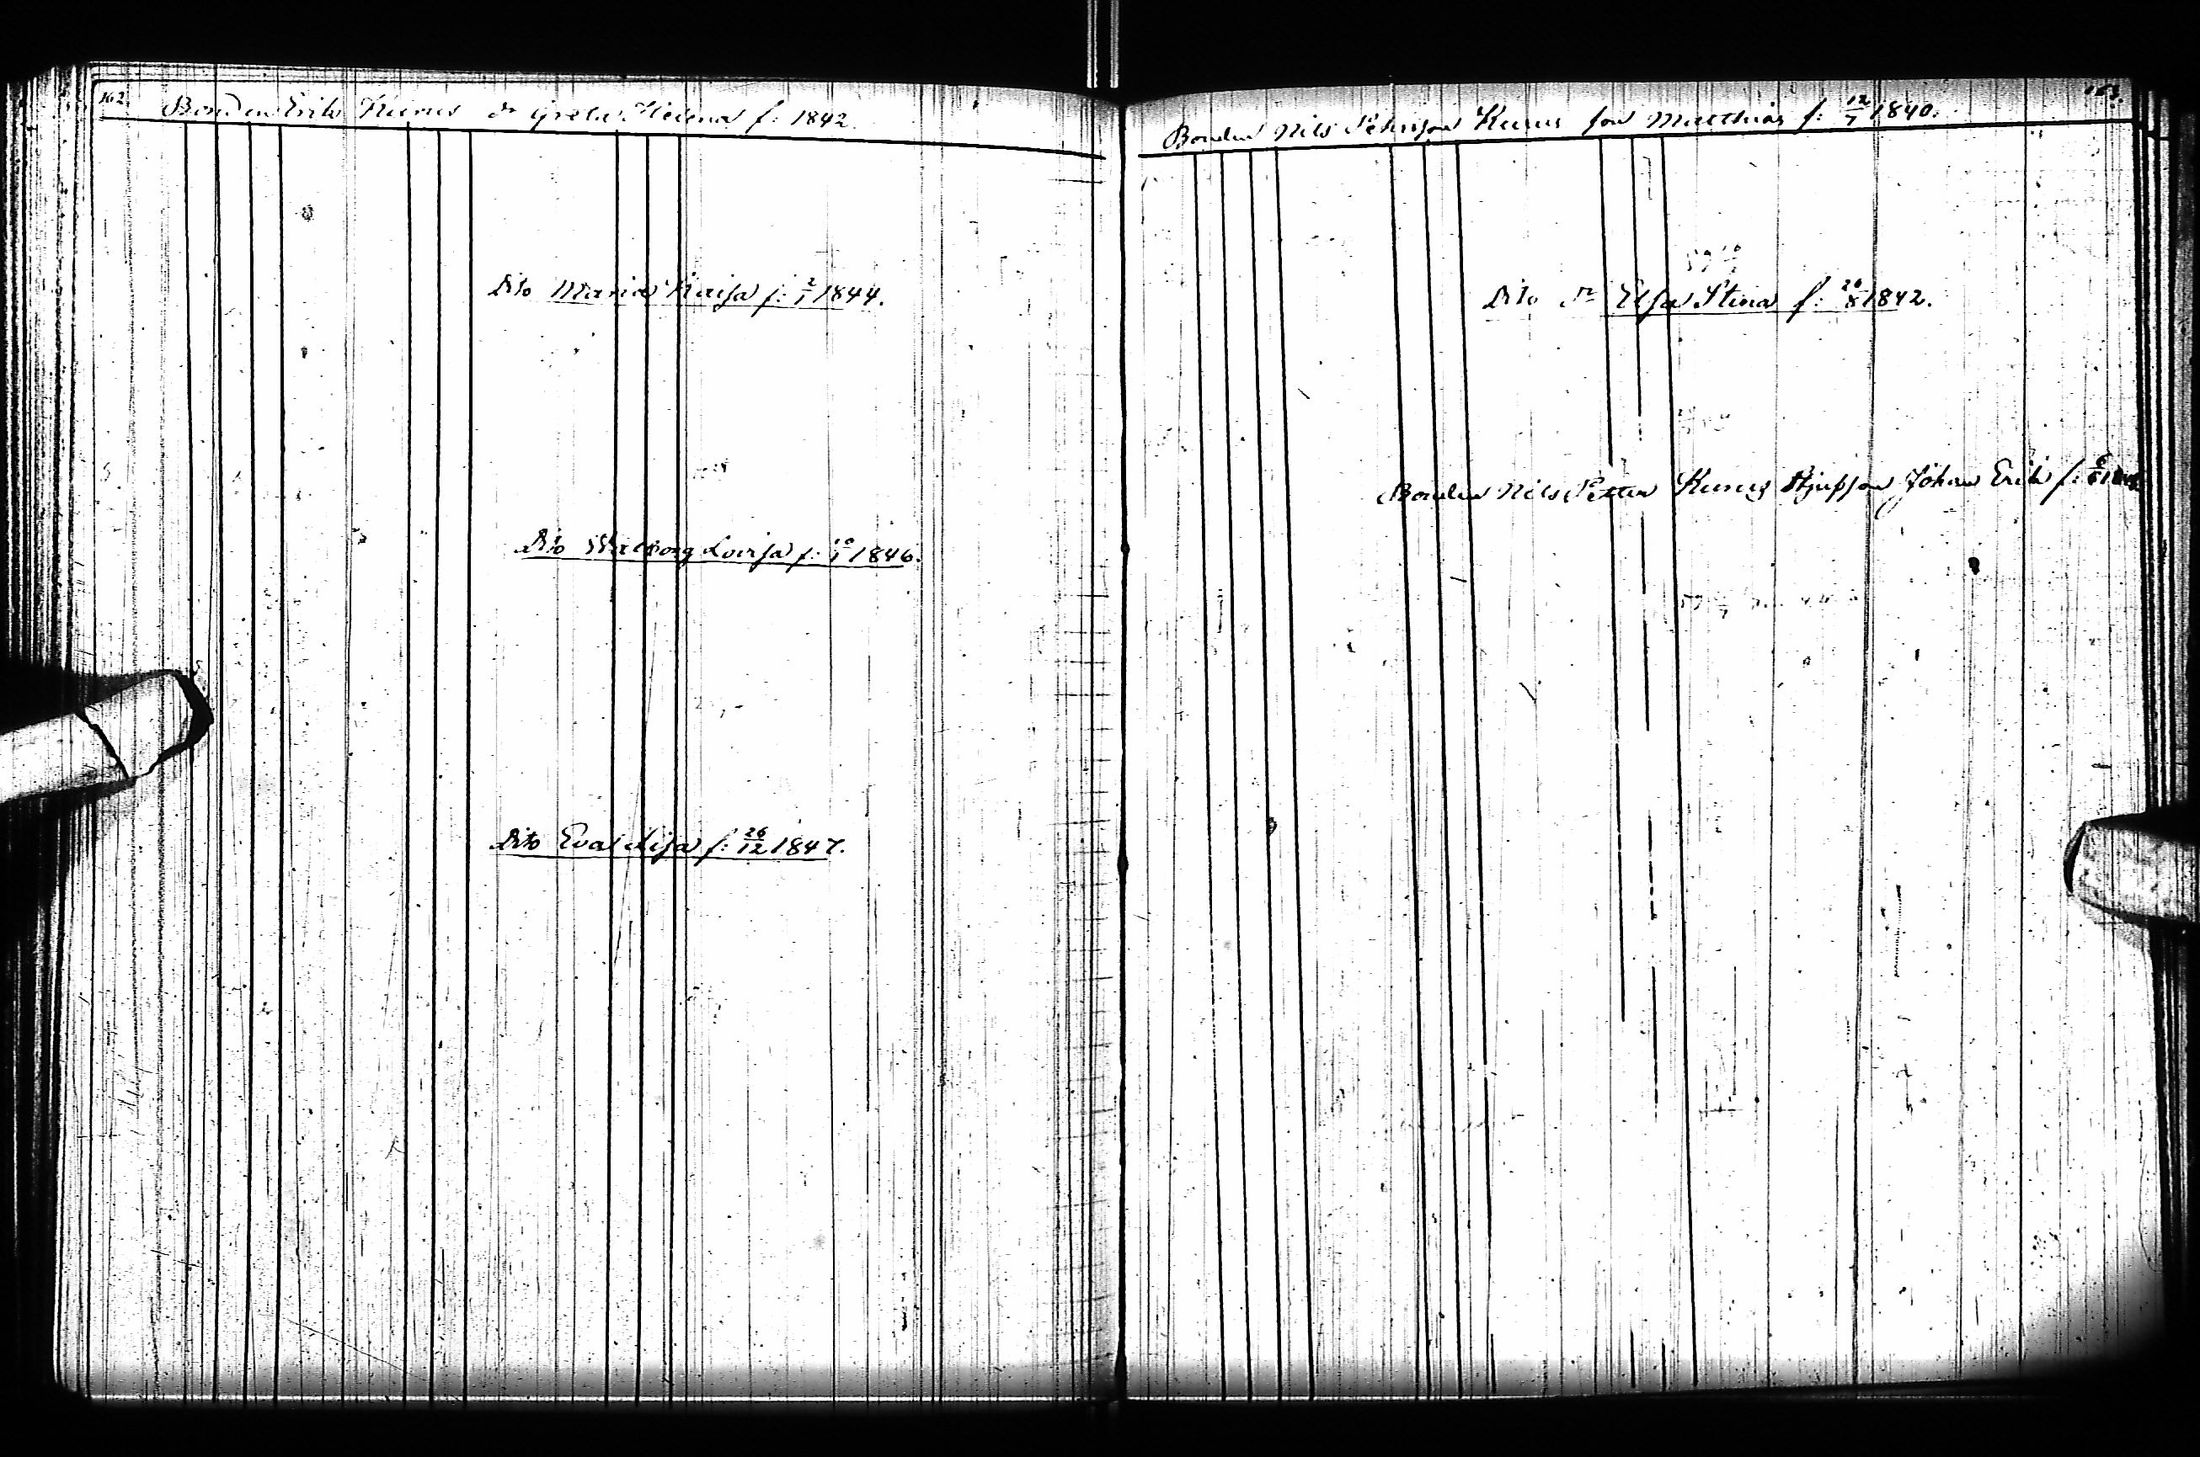 162
Bonden Eriks Kunus dr Greta Helena f: 1842.
Dito Maria Kaisa f: 2/1 1844.
Dito Walborg Lovisa f: 10/1 1846.
Dito Eva Lisa f: 26/12 1847.
163.
Bonden Nils Pehrsson Kunus son Matthias f: 12/7 1840.
Dito dr Elsa Stina f: 20/8 1842.
Bonden Nils Petter Kunus Styfson Johan Erik f: